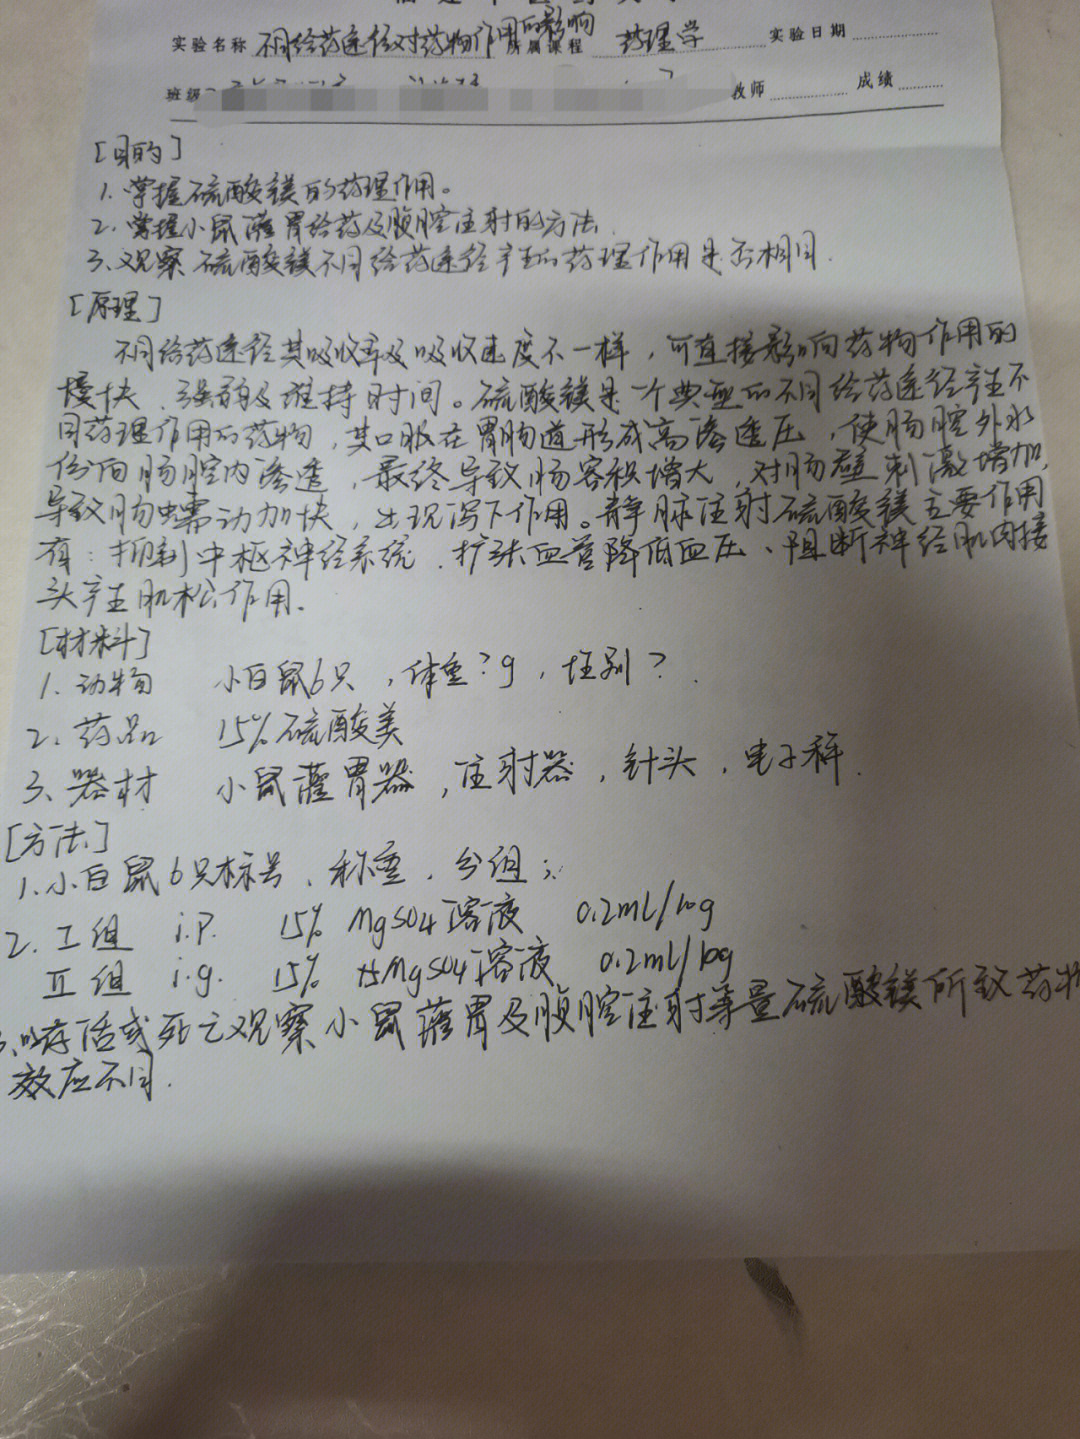 实验名称 不同给药途径对药物作用的影响 所属课程 药理学 实验日期
班级 教师 成绩
[目的]
1. 掌握硫酸镁的药理作用。
2. 掌握小鼠灌胃给药及腹腔注射的方法.
3、观察硫酸镁不同给药途经产生的药理作用是否相同.
[原理]
不同给药途经其吸收率及吸收速度不一样，可直接影响药物作用的
慢快、强弱及维持时间。硫酸镁是一个典型的不同给药途经产生不
同药理作用的药物，其口服在胃肠道形成高渗透压，使肠腔外水
份向肠腔内渗透，最终导致肠容积增大，对肠壁刺激增加,
导致肠蠕动加快，出现泻下作用。静脉注射硫酸镁主要作用
有：抑制中枢神经系统、扩张血管降低血压、阻断神经肌肉接
头产生肌松作用.
[材料]
1. 动物 小白鼠6只，体重?g，性别?
2. 药品 15%硫酸美
3、器材 小鼠灌胃器，注射器，针头，电子秤.
[方法]
1. 小白鼠6只标号、称重、分组；
2. I组 i.p. 15% MgSO4溶液 0.2mL/10g
II组 i.g. 15% MgSO4溶液 0.2mL/10g
3、以存活或死亡观察小鼠灌胃及腹腔注射等量硫酸镁所致药物
效应不同.